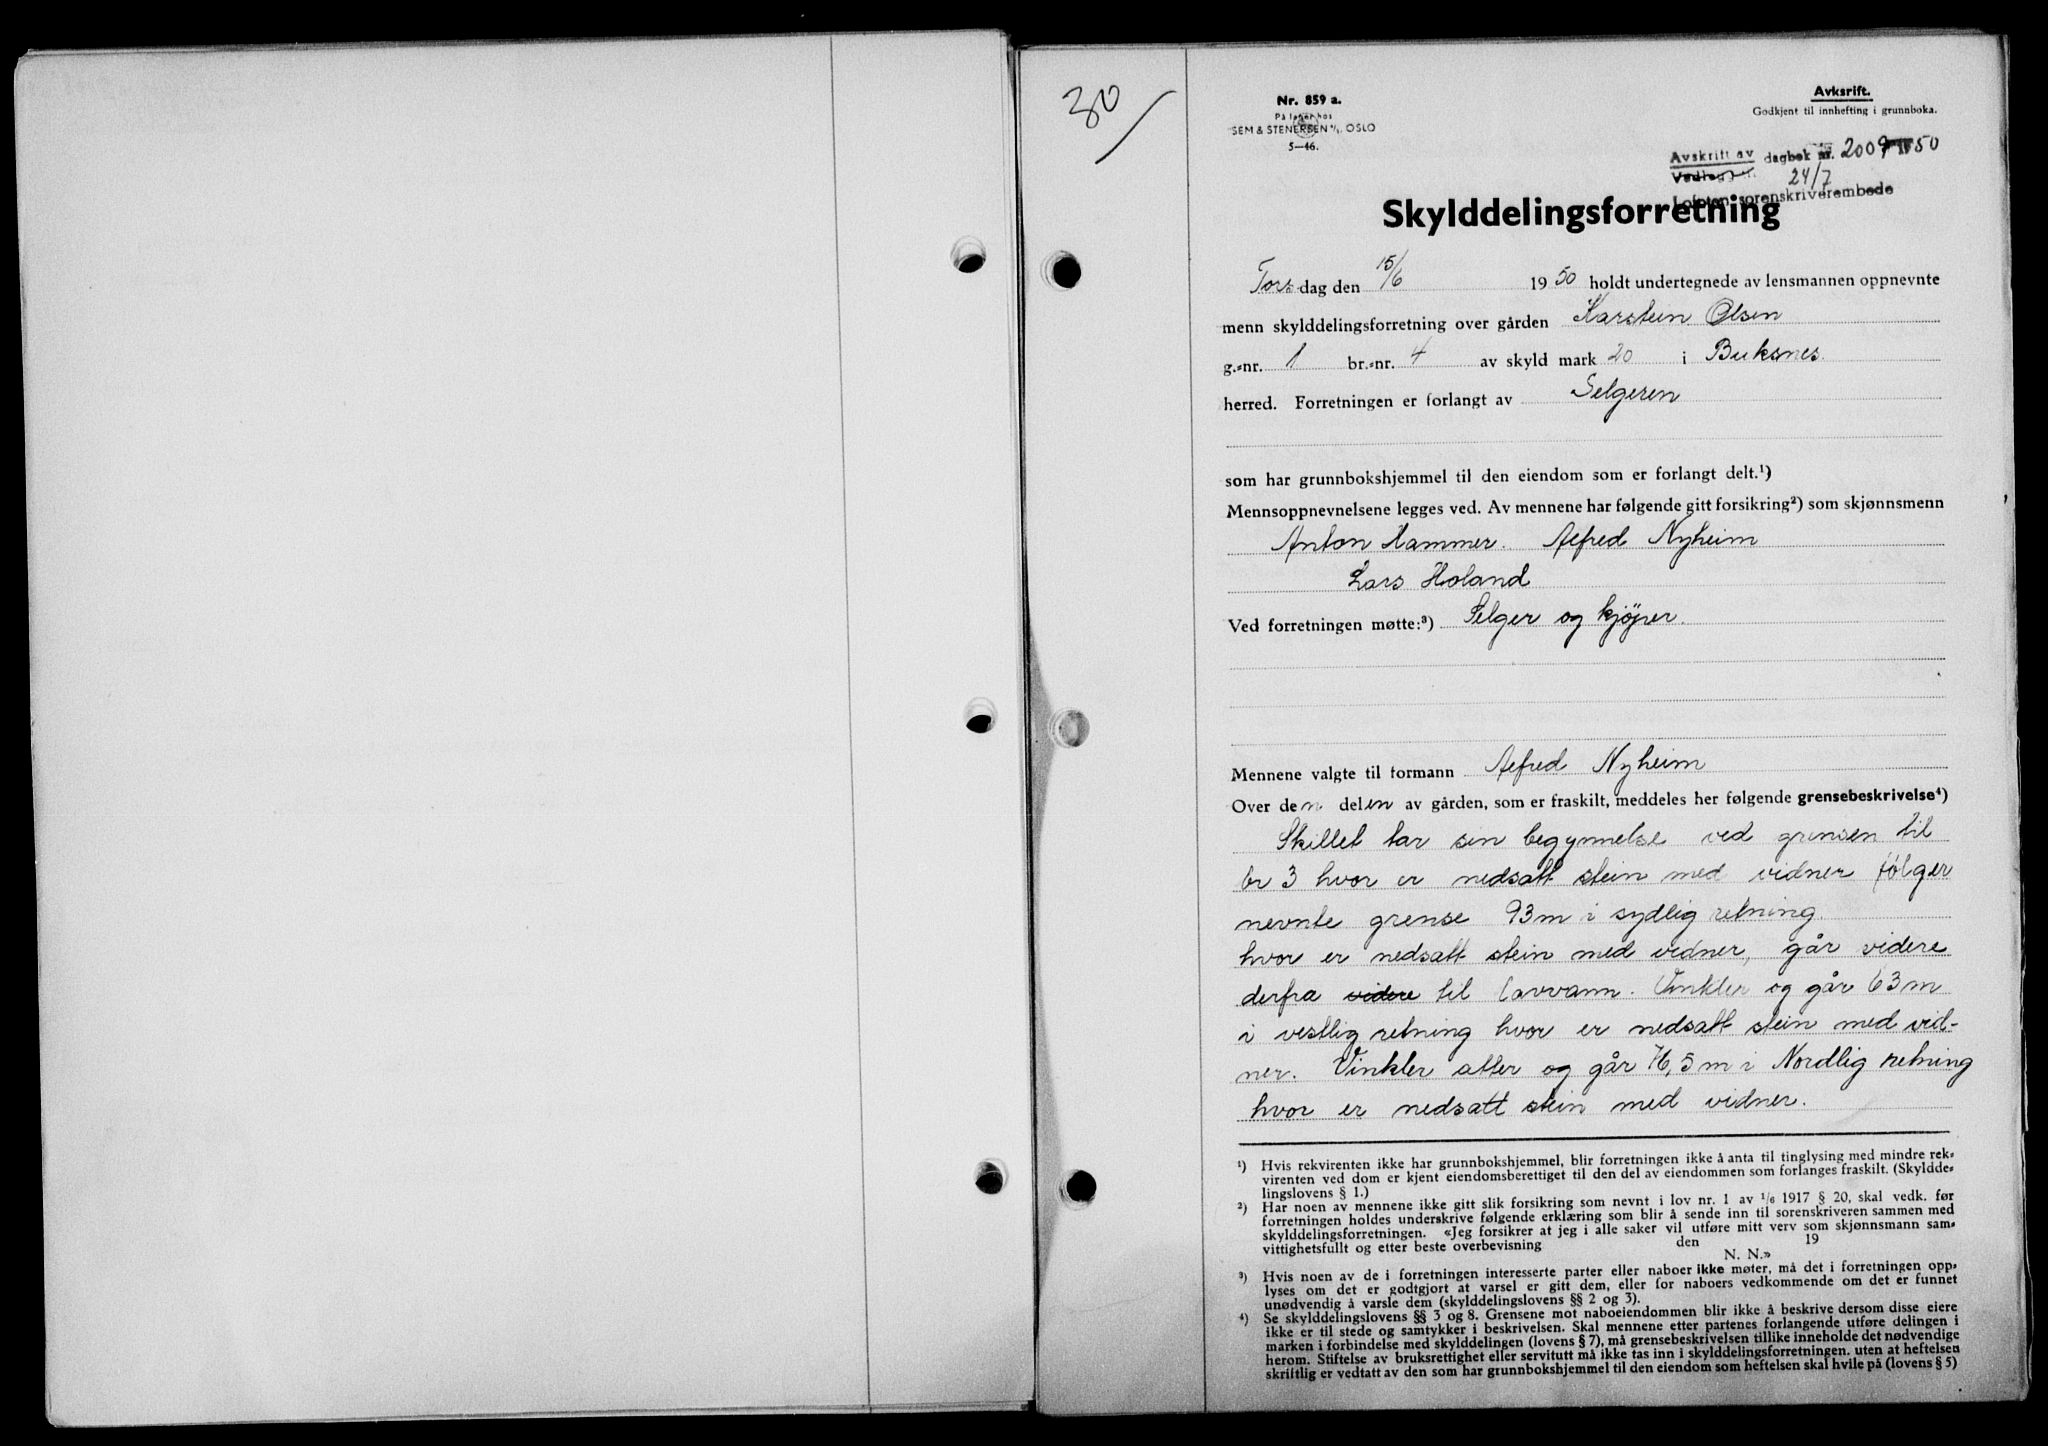 30
Nr. 859 a.
På lager hos
SEM & STENERSEN A/S, OSLO
5—46.
Avksrift.
Godkjent til innhefting i grunnboka.
Avskrift av dagbok nr. 2009 50
Vedlegg 24/7
Lofoten sorenskriverembede
Skylddelingsforretning
Tors dag den 15/6 1950 holdt undertegnede av lensmannen oppnevnte
menn skylddelingsforretning over gården Karstein Olsen
g.-nr. 1 br.-nr. 4 av skyld mark 20 i Buksnes.
herred. Forretningen er forlangt av Selgeren
som har grunnbokshjemmel til den eiendom som er forlangt delt.¹)
Mennsoppnevnelsene legges ved. Av mennene har følgende gitt forsikring²) som skjønnsmenn
Anton Hammer. Alfred Nyheim
Lars Holand
Ved forretningen møtte:³) Selger og kjøper.
Mennene valgte til formann Alfred Nyheim
Over den delen av gården, som er fraskilt, meddeles her følgende grensebeskrivelse⁴)
Skillet tar sin begynnelse ved grensen til
br 3 hvor er nedsatt stein med vidner følger
nevnte grense 93 m i sydlig retning.
hvor er nedsatt stein med vidner, går videre
derfra videre til lavvann. Vinkler og går 63 m
i vestlig retning hvor er nedsatt stein med vid-
ner. Vinkler atter og går 76,5 m i Nordlig retning
hvor er nedsatt stein med vidner.
¹) Hvis rekvirenten ikke har grunnbokshjemmel, blir forretningen ikke å anta til tinglysing med mindre rek-
virenten ved dom er kjent eiendomsberettiget til den del av eiendommen som forlanges fraskilt. (Skyldde-
lingslovens § 1.)
²) Har noen av mennene ikke gitt slik forsikring som nevnt i lov nr. 1 av 1/6 1917 § 20, skal vedk. før
forretningen holdes underskrive følgende erklæring som blir å sende inn til sorenskriveren sammen med
skylddelingsforretningen. «Jeg forsikrer at jeg i alle saker vil utføre mitt verv som skjønnsmann sam-
vittighetsfullt og etter beste overbevisning den 19
N. N.»
³) Hvis noen av de i forretningen interesserte parter eller naboer ikke møter, må det i forretningen opp-
lyses om det er godtgjort at varsel er gitt dem, eller for naboers vedkommende om det er funnet
unødvendig å varsle dem (skylddelingslovens §§ 2 og 3).
⁴) Se skylddelingslovens §§ 3 og 8. Grensene mot naboeiendommen blir ikke å beskrive dersom disse eiere
ikke er til stede og samtykker i beskrivelsen. Skal mennene etter partenes forlangende utføre delingen i
marken i forbindelse med skylddelingen (lovens § 7), må grensebeskrivelsen tillike inneholde det nødvendige
herom. Stiftelse av bruksrettighet eller servitutt må ikke tas inn i skylddelingsforretningen. uten at heftelsen
skriftlig er vedtatt av den som har grunnbokshjemmel til den eiendom som heftelsen skal hvile på (lovens § 5)